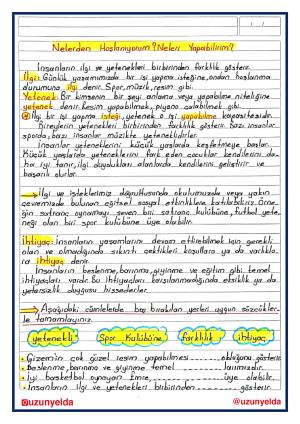 Nelerden Hoşlanıyorum? Neleri Yapabilirim?
İnsanların ilgi ve yetenekleri birbirinden farklılık gösterir.
İlgi: Günlük yaşamımızda bir işi yapma isteğine, ondan hoşlanma
durumuna ilgi denir. Spor, müzik, resim gibi.
Yetenek: Bir kimsenin bir şeyi anlama veya yapabilme niteliğine
yetenek denir. Resim yapabilmek, piyano çalabilmek gibi.
İlgi bir işi yapma isteği, yetenek o işi yapabilme kapasitesidir.
Bireylerin yetenekleri birbirinden farklılık gösterir. Bazı insanlar
sporda, bazı insanlar müzikte yeteneklidirler.
İnsanlar yeteneklerini küçük yaşlarda keşfetmeye başlar.
Küçük yaşlarda yeteneklerini fark eden çocuklar kendilerini da-
ha iyi tanır, ilgi duydukları alanlarda kendilerini geliştirir ve
başarılı olurlar.
İlgi ve isteklerimiz doğrultusunda okulumuzda veya yakın
çevremizde bulunan eğitsel sosyal etkinliklere katılabiliriz. Örne-
ğin satranç oynamayı seven biri satranç kulübüne, futbol yete-
neği olan biri spor kulübüne üye olabilir.
İhtiyaç: İnsanların yaşamlarını devam ettirebilmek için gerekli
olan ve olmadığında sıkıntı çektikleri koşullara ya da varlıkla-
ra ihtiyaç denir.
İnsanların beslenme, barınma, giyinme ve eğitim gibi temel
ihtiyaçları vardır. Bu ihtiyaçları karşılanmadığında eksiklik ya da
yetersizlik duygusu hissederler.
Aşağıdaki cümlelerde boş bırakılan yerleri uygun sözcükler-
le tamamlayınız.
yetenekli
Spor Kulübüne
farklılık
ihtiyaç
• Gizem'in çok güzel resim yapabilmesi ............ olduğunu gösterir.
• Beslenme, barınma ve giyinme temel ............ larımızdır.
• İyi basketbol oynayan Emre, ............ üye olabilir.
• İnsanların ilgi ve yetenekleri birbirinden ............ gösterir.
@uzunyelda
@uzunyelda